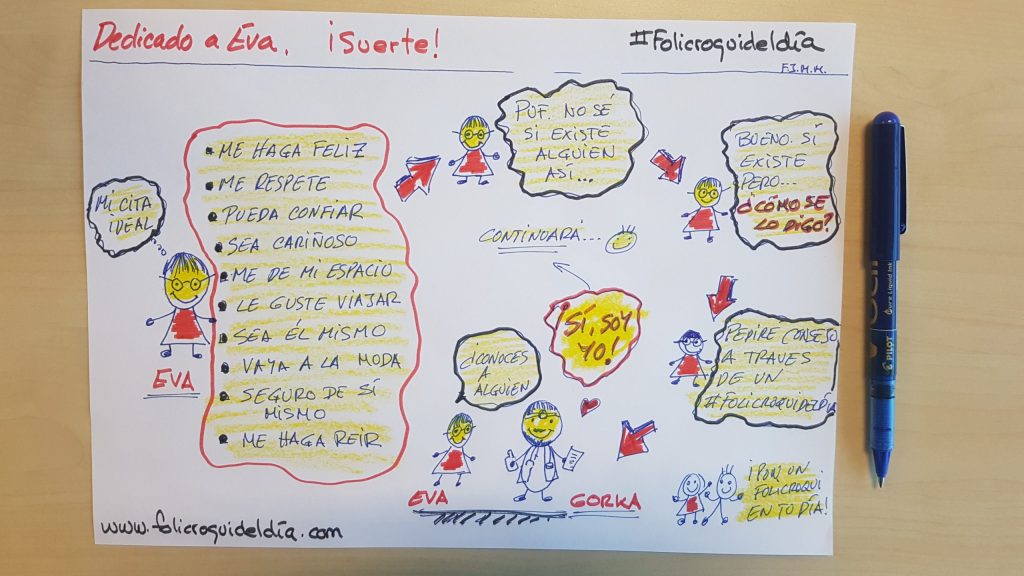 Dedicado a Eva. ¡Suerte!
#Folicroquideldía
F.I.M.M.
MI CITA
IDEAL
EVA
• ME HAGA FELIZ
• ME RESPETE
• PUEDA CONFIAR
• SEA CARIÑOSO
• ME DE MI ESPACIO
• LE GUSTE VIAJAR
• SEA ÉL MISMO
• VAYA A LA MODA
• SEGURO DE SÍ
MISMO
• ME HAGA REIR
PUF. NO SÉ
SI EXISTE
ALGUIEN
ASÍ...
BUENO. SÍ
EXISTE
PERO...
¿CÓMO SE
LO DIGO?
PEDIRE CONSEJO
A TRAVES
DE UN
#FOLICROQUIDELDÍA
¿CONOCES
A
ALGUIEN
¡SÍ, SOY
YO!
CONTINUARÁ...
EVA
GORKA
¡PON UN
FOLICROQUI
EN TU DÍA!
www.folicroquideldía.com
Pure Liquid Ink
PILOT